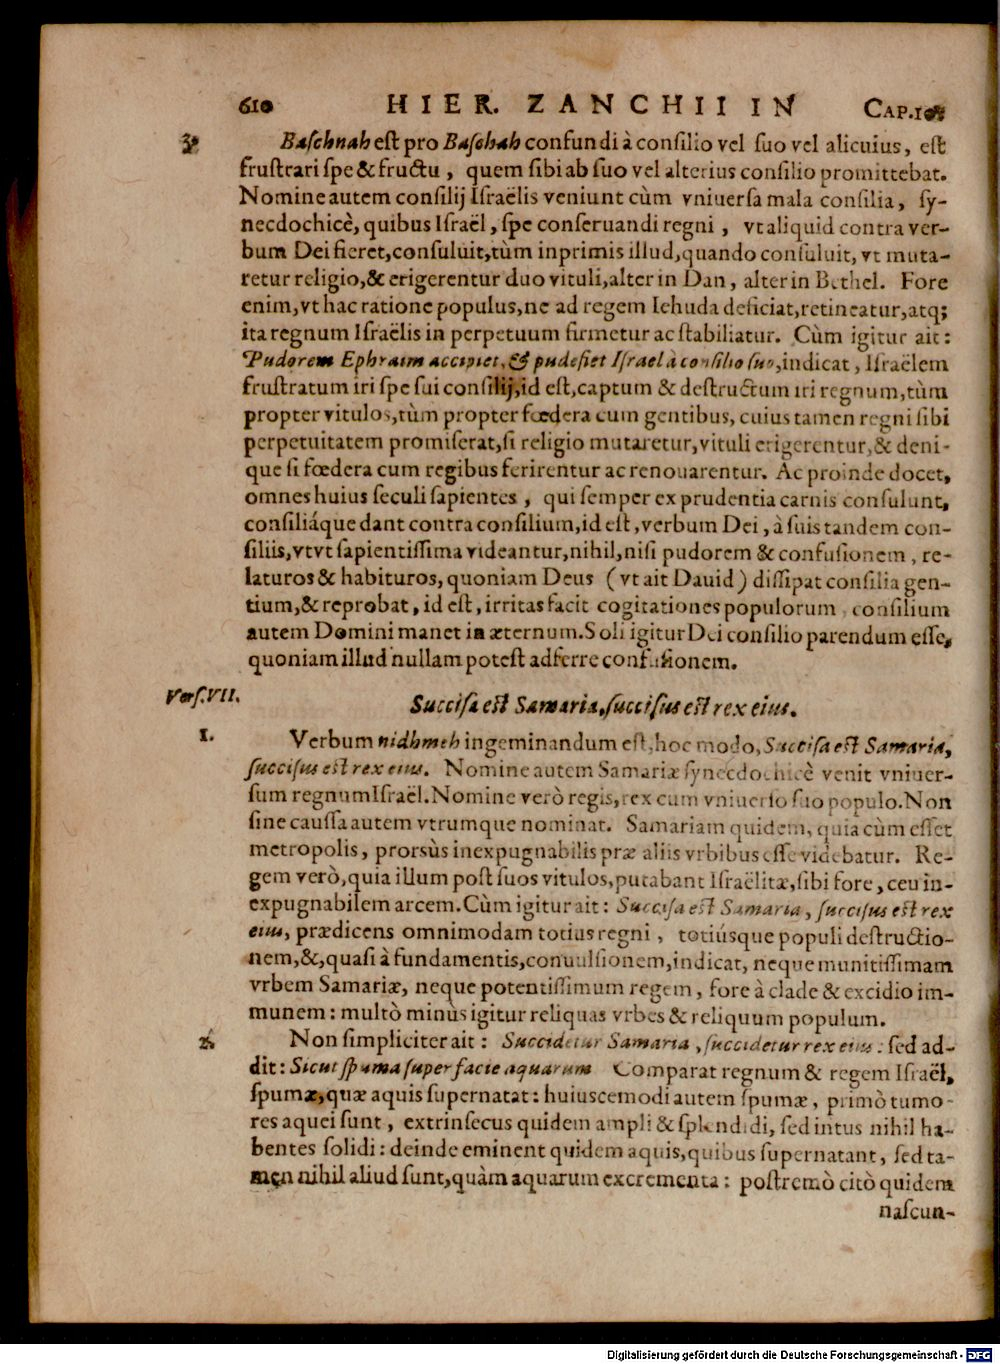 610 HIER. ZANCHII IN CAP.10.
3. Baſchnah eſt pro Baſchah confundi à conſilio vel ſuo vel alicuius, eſt
fruſtrari ſpe & fructu, quem ſibi ab ſuo vel alterius conſilio promittebat.
Nomine autem conſilij Iſraëlis veniunt cùm vniuerſa mala conſilia, ſy-
necdochicè, quibus Iſraël, ſpe conſeruandi regni, vt aliquid contra ver-
bum Dei fieret, conſuluit, tùm inprimis illud, quando conſuluit, vt muta-
retur religio, & erigerentur duo vituli, alter in Dan, alter in Bethel. Fore
enim, vt hac ratione populus, ne ad regem Iehuda deficiat, retineatur, atq;
ita regnum Iſraëlis in perpetuum firmetur ac ſtabiliatur. Cùm igitur ait:
Pudorem Ephraim accipiet, & pudefiet Iſrael à conſilio ſuo, indicat, Iſraëlem
fruſtratum iri ſpe ſui conſilij, id eſt, captum & deſtructum iri regnum, tùm
propter vitulos, tùm propter fœdera cum gentibus, cuius tamen regni ſibi
perpetuitatem promiſerat, ſi religio mutaretur, vituli erigerentur, & deni-
que ſi fœdera cum regibus ferirentur ac renouarentur. Ac proinde docet,
omnes huius ſeculi ſapientes, qui ſemper ex prudentia carnis conſulunt,
conſiliáque dant contra conſilium, id eſt, verbum Dei, à ſuis tandem con-
ſiliis, vtvt ſapientiſſima videantur, nihil, niſi pudorem & confuſionem, re-
laturos & habituros, quoniam Deus (vt ait Dauid) diſſipat conſilia gen-
tium, & reprobat, id eſt, irritas facit cogitationes populorum, conſilium
autem Domini manet in æternum. Soli igitur Dei conſilio parendum eſſe,
quoniam illud nullam poteſt adferre confuſionem.
Verſ.VII. Succiſa eſt Samaria, ſucciſus eſt rex eius.
1. Verbum nidhmeh ingeminandum eſt, hoc modo, Succiſa eſt Samaria,
ſucciſus eſt rex eius. Nomine autem Samariæ ſynecdochicè venit vniuer-
ſum regnum Iſraël. Nomine verò regis, rex cum vniuerſo ſuo populo. Non
ſine cauſſa autem vtrumque nominat. Samariam quidem, quia cùm eſſet
metropolis, prorsùs inexpugnabilis præ aliis vrbibus eſſe videbatur. Re-
gem verò, quia illum poſt ſuos vitulos, putabant Iſraëlitæ, ſibi fore, ceu in-
expugnabilem arcem. Cùm igitur ait: Succiſa eſt Samaria, ſucciſus eſt rex
eius, prædicens omnimodam totius regni, totiúsque populi deſtructio-
nem, &, quaſi à fundamentis, conuulſionem, indicat, neque munitiſſimam
vrbem Samariæ, neque potentiſſimum regem, fore à clade & excidio im-
munem: multò minùs igitur reliquas vrbes & reliquum populum.
2. Non ſimpliciter ait: Succidetur Samaria, ſuccidetur rex eius: ſed ad-
dit: Sicut ſpuma ſuper facie aquarum Comparat regnum & regem Iſraël,
ſpumæ, quæ aquis ſupernatat: huiuscemodi autem ſpumæ, primò tumo-
res aquei ſunt, extrinſecus quidem ampli & ſplendidi, ſed intus nihil ha-
bentes ſolidi: deinde eminent quidem aquis, quibus ſupernatant, ſed ta-
men nihil aliud ſunt, quàm aquarum excrementa: poſtremò citò quidem
naſcun-
Digitalisierung gefördert durch die Deutsche Forschungsgemeinschaft - DFG